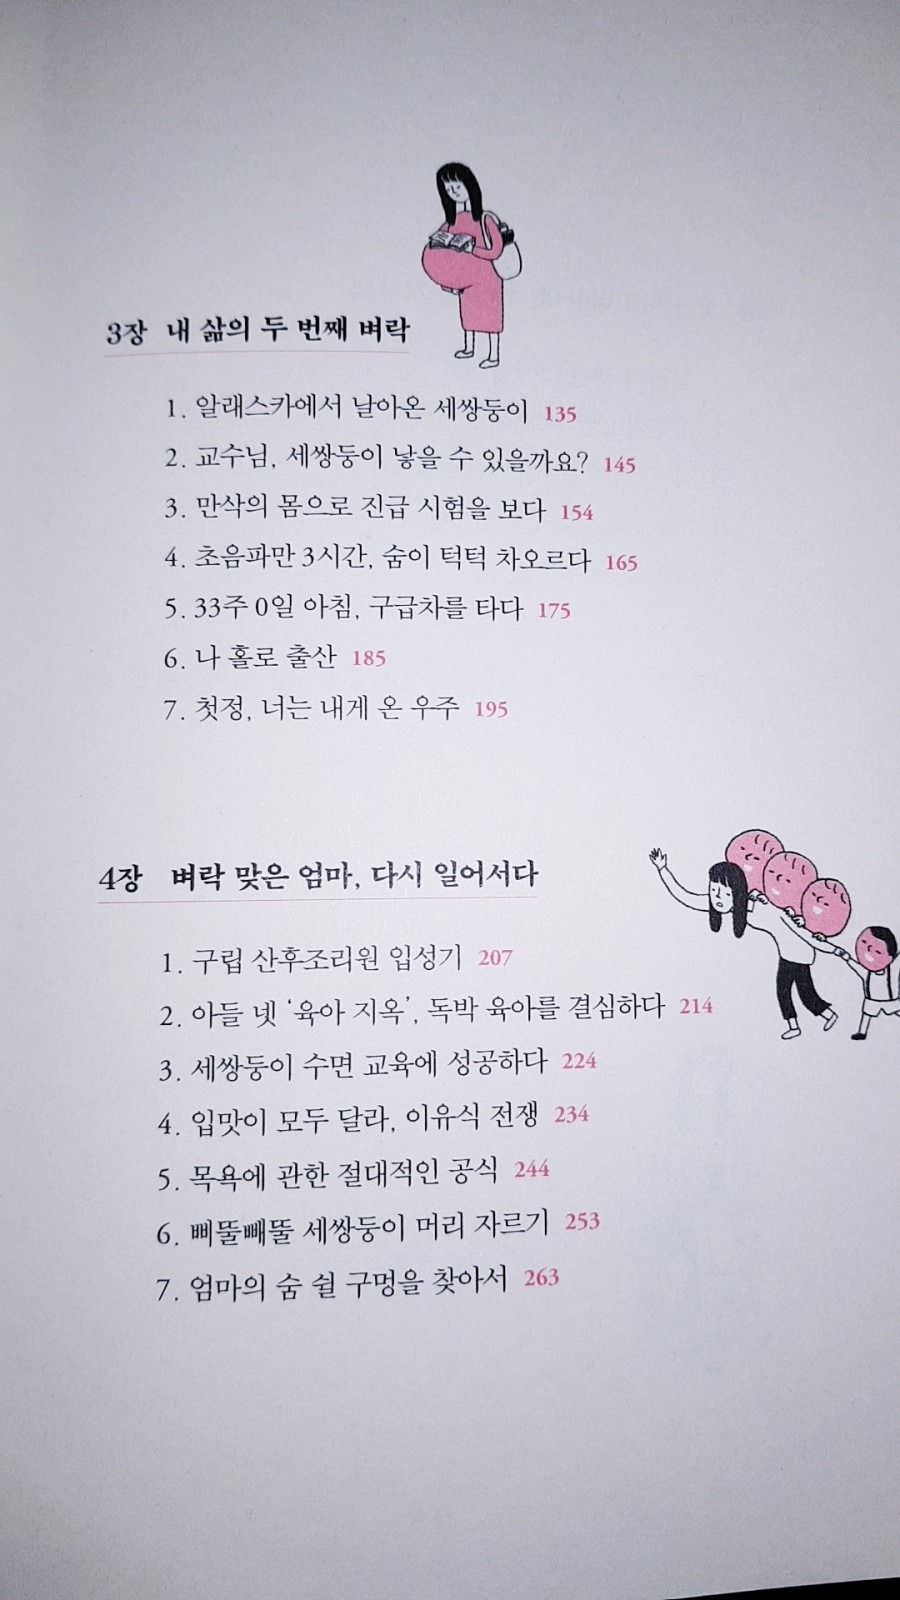 3장 내 삶의 두 번째 벼락
1. 알래스카에서 날아온 세쌍둥이 135
2. 교수님, 세쌍둥이 낳을 수 있을까요? 145
3. 만삭의 몸으로 진급 시험을 보다 154
4. 초음파만 3시간, 숨이 턱턱 차오르다 165
5. 33주 0일 아침, 구급차를 타다 175
6. 나 홀로 출산 185
7. 첫정, 너는 내게 온 우주 195
4장 벼락 맞은 엄마, 다시 일어서다
1. 구립 산후조리원 입성기 207
2. 아들 넷 ‘육아 지옥’, 독박 육아를 결심하다 214
3. 세쌍둥이 수면 교육에 성공하다 224
4. 입맛이 모두 달라, 이유식 전쟁 234
5. 목욕에 관한 절대적인 공식 244
6. 삐뚤빼뚤 세쌍둥이 머리 자르기 253
7. 엄마의 숨 쉴 구멍을 찾아서 263